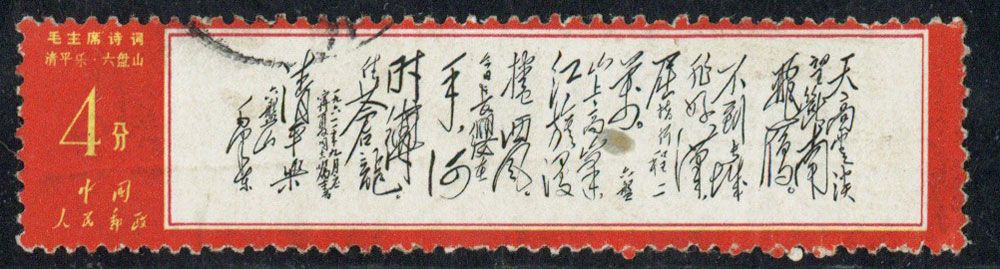 毛主席诗词
清平乐·六盘山
4分
中国
人民邮政
天高雲淡
望断南
飛雁。
不到长城
非好漢,
屈指行程二
万。六盘
山上高峯
红旗漫
捲西风。
今日长缨在
手,何
时縛
住苍龍。
一九六一年九月应
宁夏同志嘱书
清平樂
六盘山
毛泽东